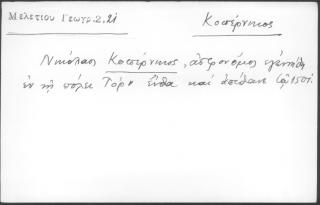 Μελετίου Γεωγρ.2.21
Κοπέρνικος
Νικόλαος Κοπέρνικος, ἀστρονόμος ἐγεννήθη
ἐν τῇ πόλει Τόρν ἔνθα καὶ ἀπέθανε 1501.